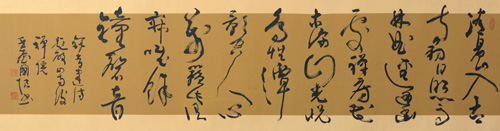 清晨入古
寺初日照高
林曲徑通幽
處禪房花
木深山光悦
鳥性潭
影空人心
萬籟此俱
寂餘
鐘磬音
錄常建詩
題破山寺後
禪院